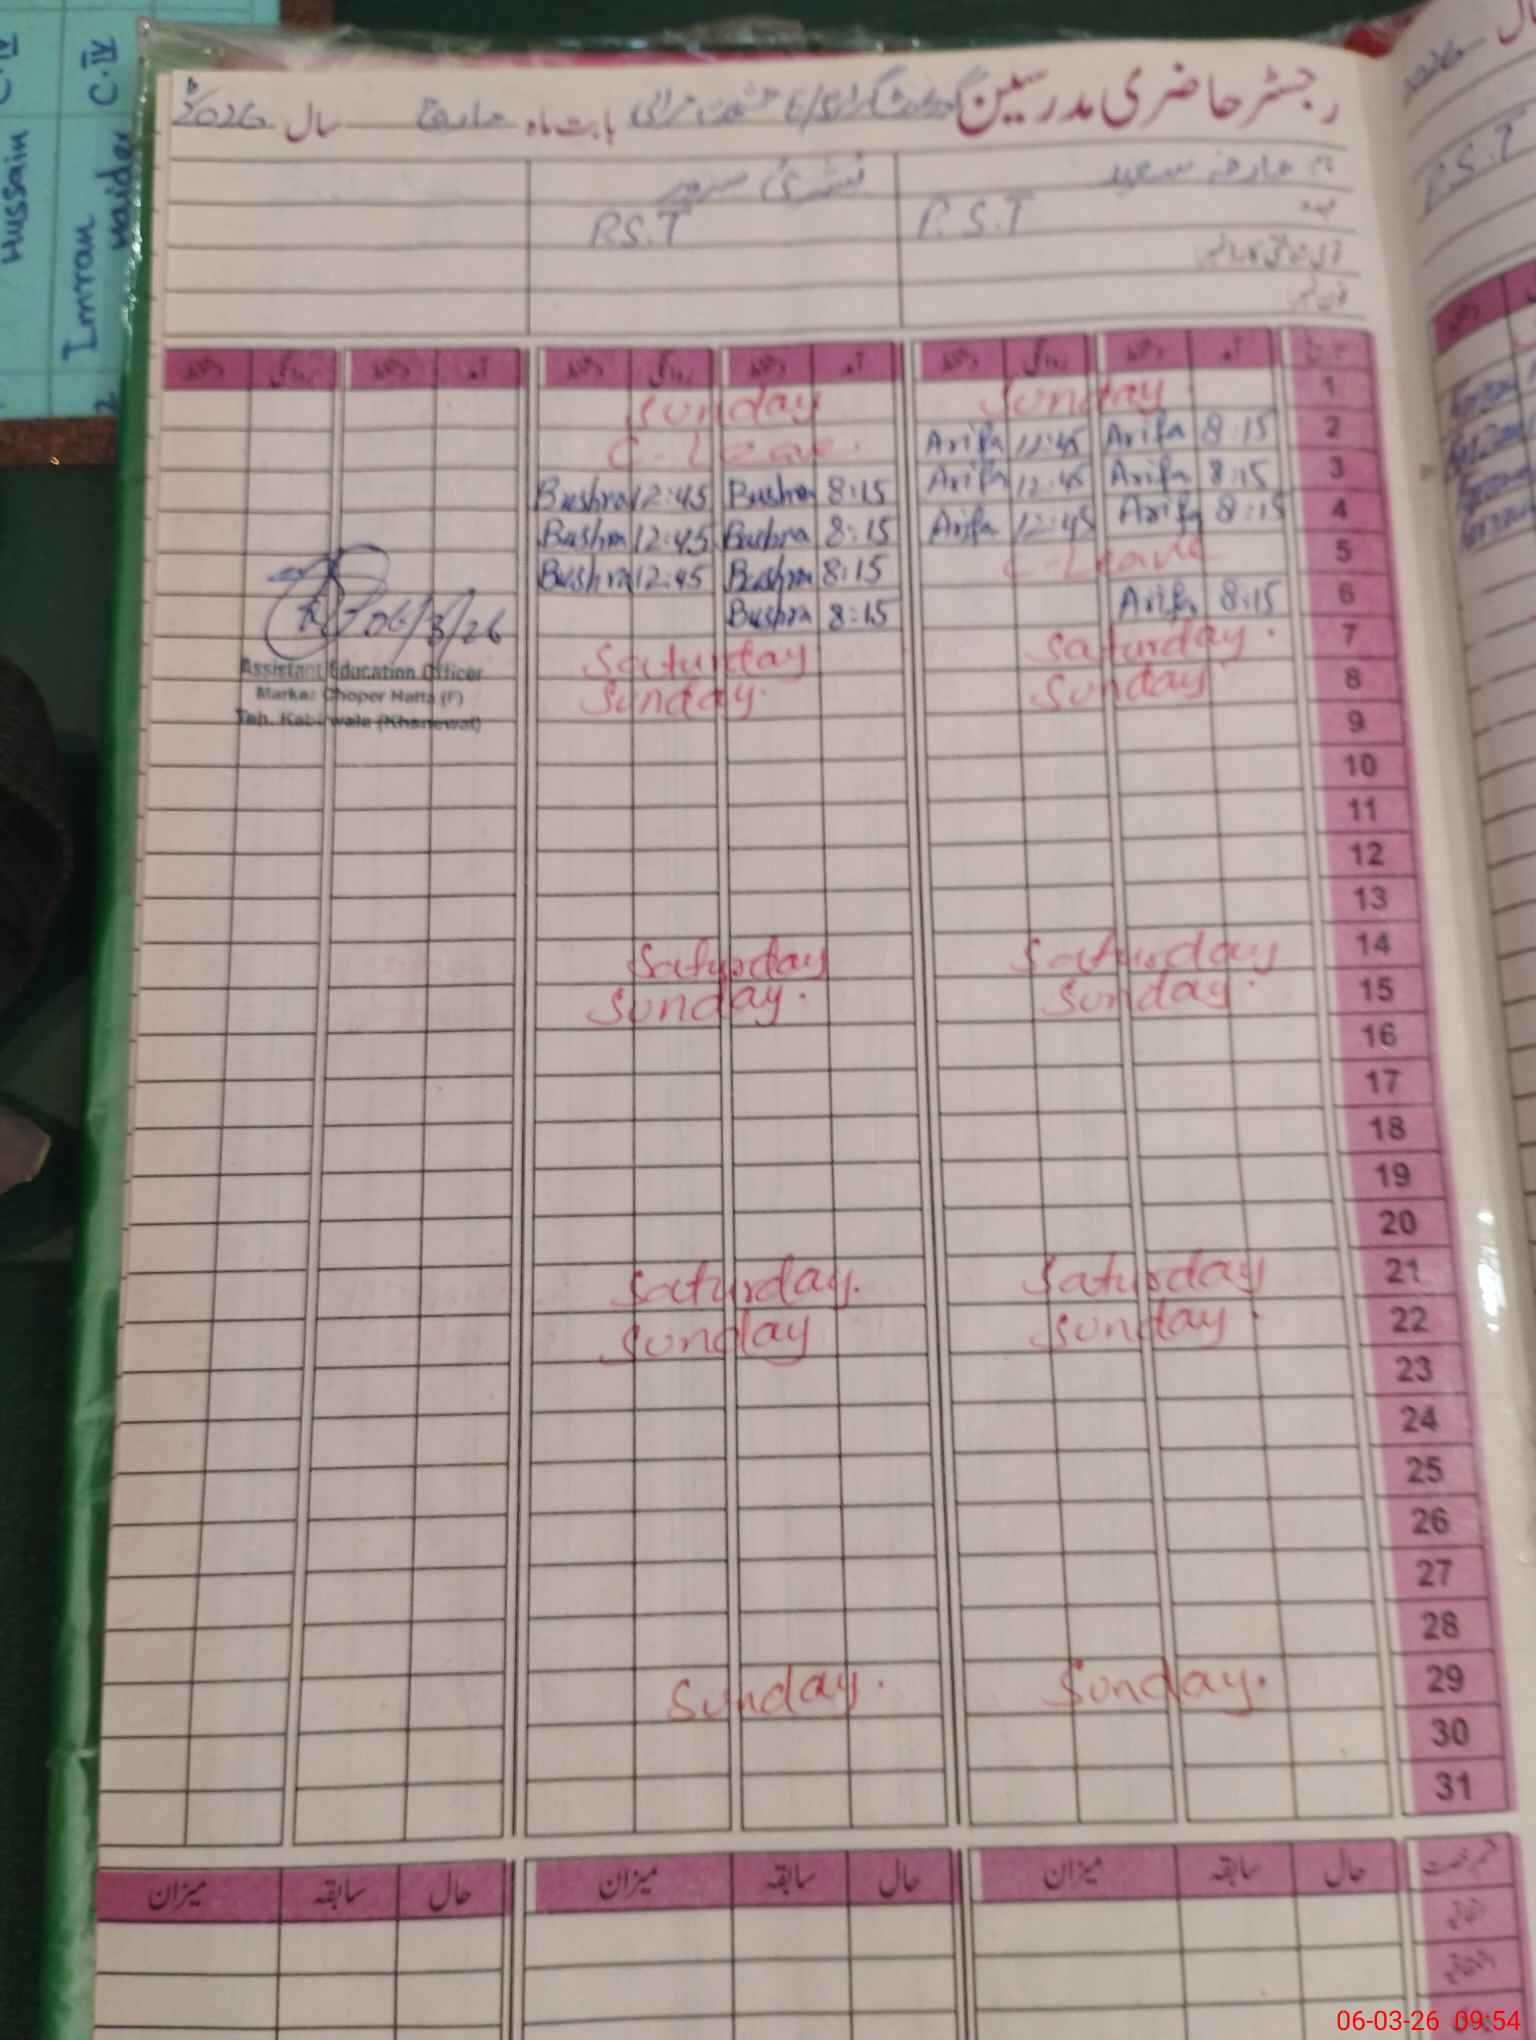 رجسٹر حاضری مدرسین بابت ماہ مارچ سال 2026
نام عارفہ سعید بشریٰ سرور
عہدہ P.S.T P.S.T
تاریخ آمد دستخط روانگی دستخط آمد دستخط روانگی دستخط آمد دستخط روانگی دستخط
1 Sunday Sunday
2 8:15 Arifa 12:45 Arifa C-Leave.
3 8:15 Arifa 12:45 Arifa 8:15 Bushra 12:45 Bushra
4 8:15 Arifa 12:45 Arifa 8:15 Bushra 12:45 Bushra
5 C-Leave 8:15 Bushra 12:45 Bushra
6 8:15 Arifa 8:15 Bushra
7 Saturday. Saturday
8 Sunday Sunday.
9
10
11
12
13
14 Saturday Saturday
15 Sunday. Sunday.
16
17
18
19
20
21 Saturday Saturday.
22 Sunday. Sunday
23
24
25
26
27
28
29 Sunday. Sunday.
30
31
06/3/26
Assistant Education Officer
Markaz Choper Hatta (F)
Teh. Kabirwala (Khanewal)
حال سابقہ میزان حال سابقہ میزان حال سابقہ میزان
اتفاقیہ
Hussain C.IV
Imran Haider C.IV
2026 سال
P.S.T
06-03-26 09:54